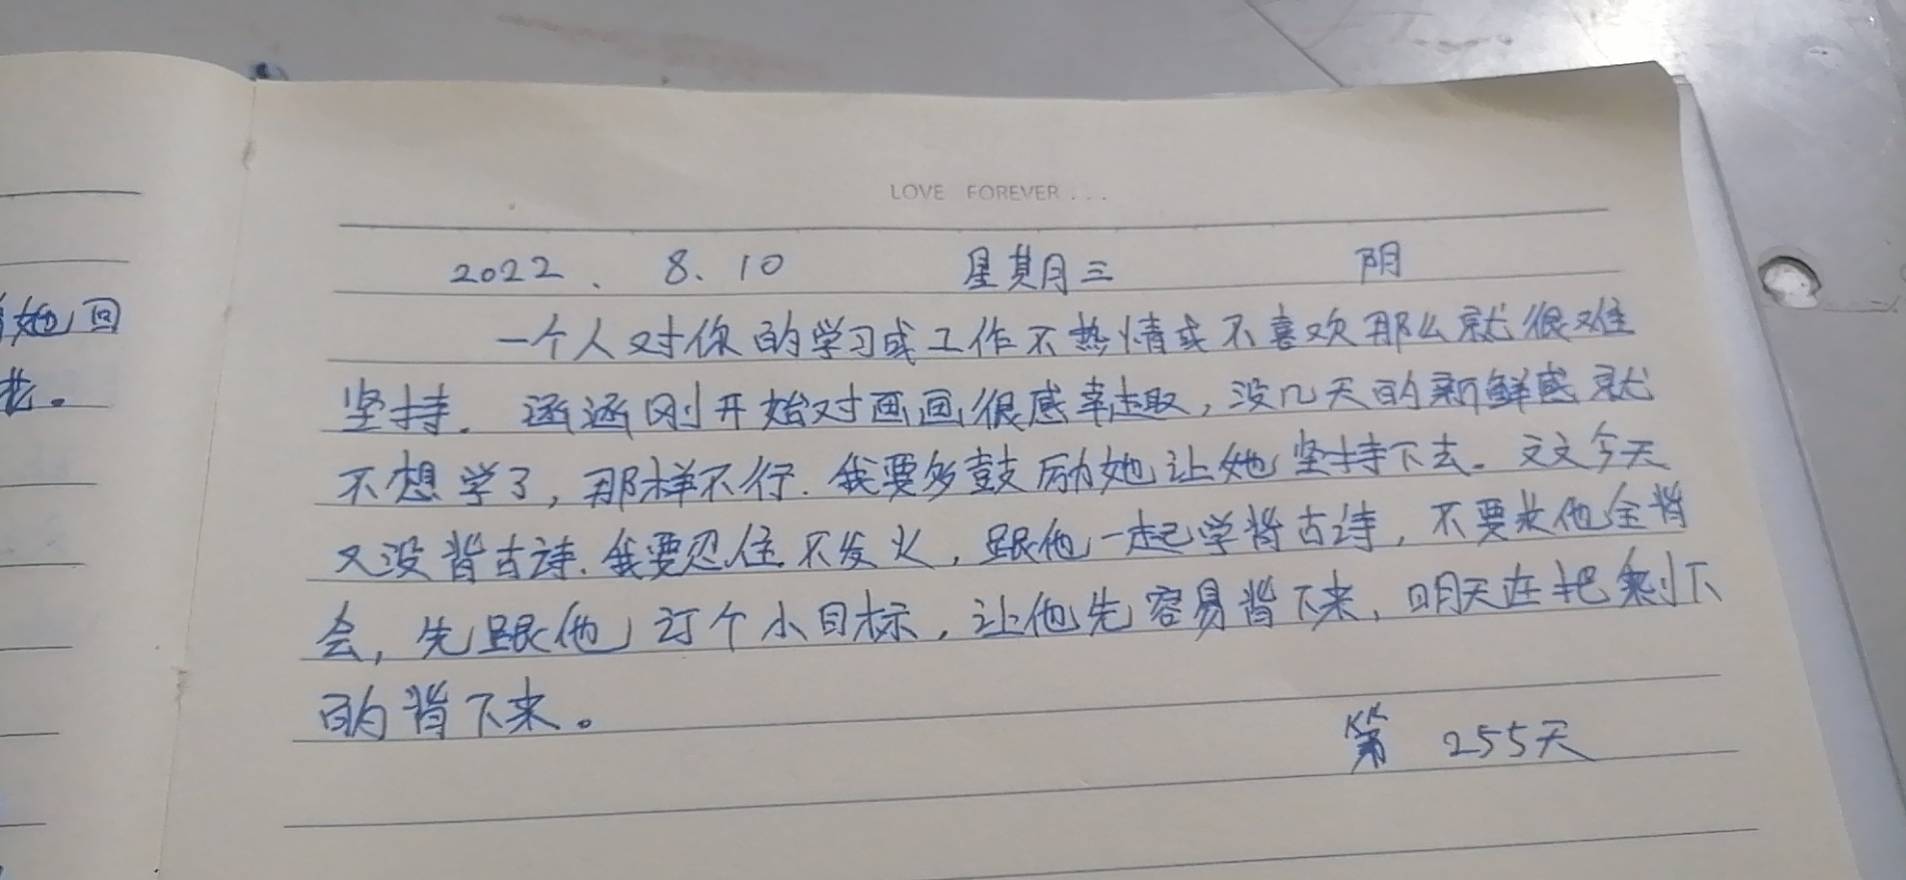 LOVE FOREVER...
2022、 8、10 星期三 阴
一个人对你的学习或工作不热情或不喜欢那么就很难
坚持。涵涵刚开始对画画很感幸趣，没几天的新鲜感就
不想学了，那样不行．我要多鼓励她让她坚持下去。文文今天
又没背古诗．我要忍住不发火，跟他一起学背古诗，不要求他全背
会，先跟他订个小目标，让他先容易背下来，明天在把剩下
的背下来。
第 255天
她回